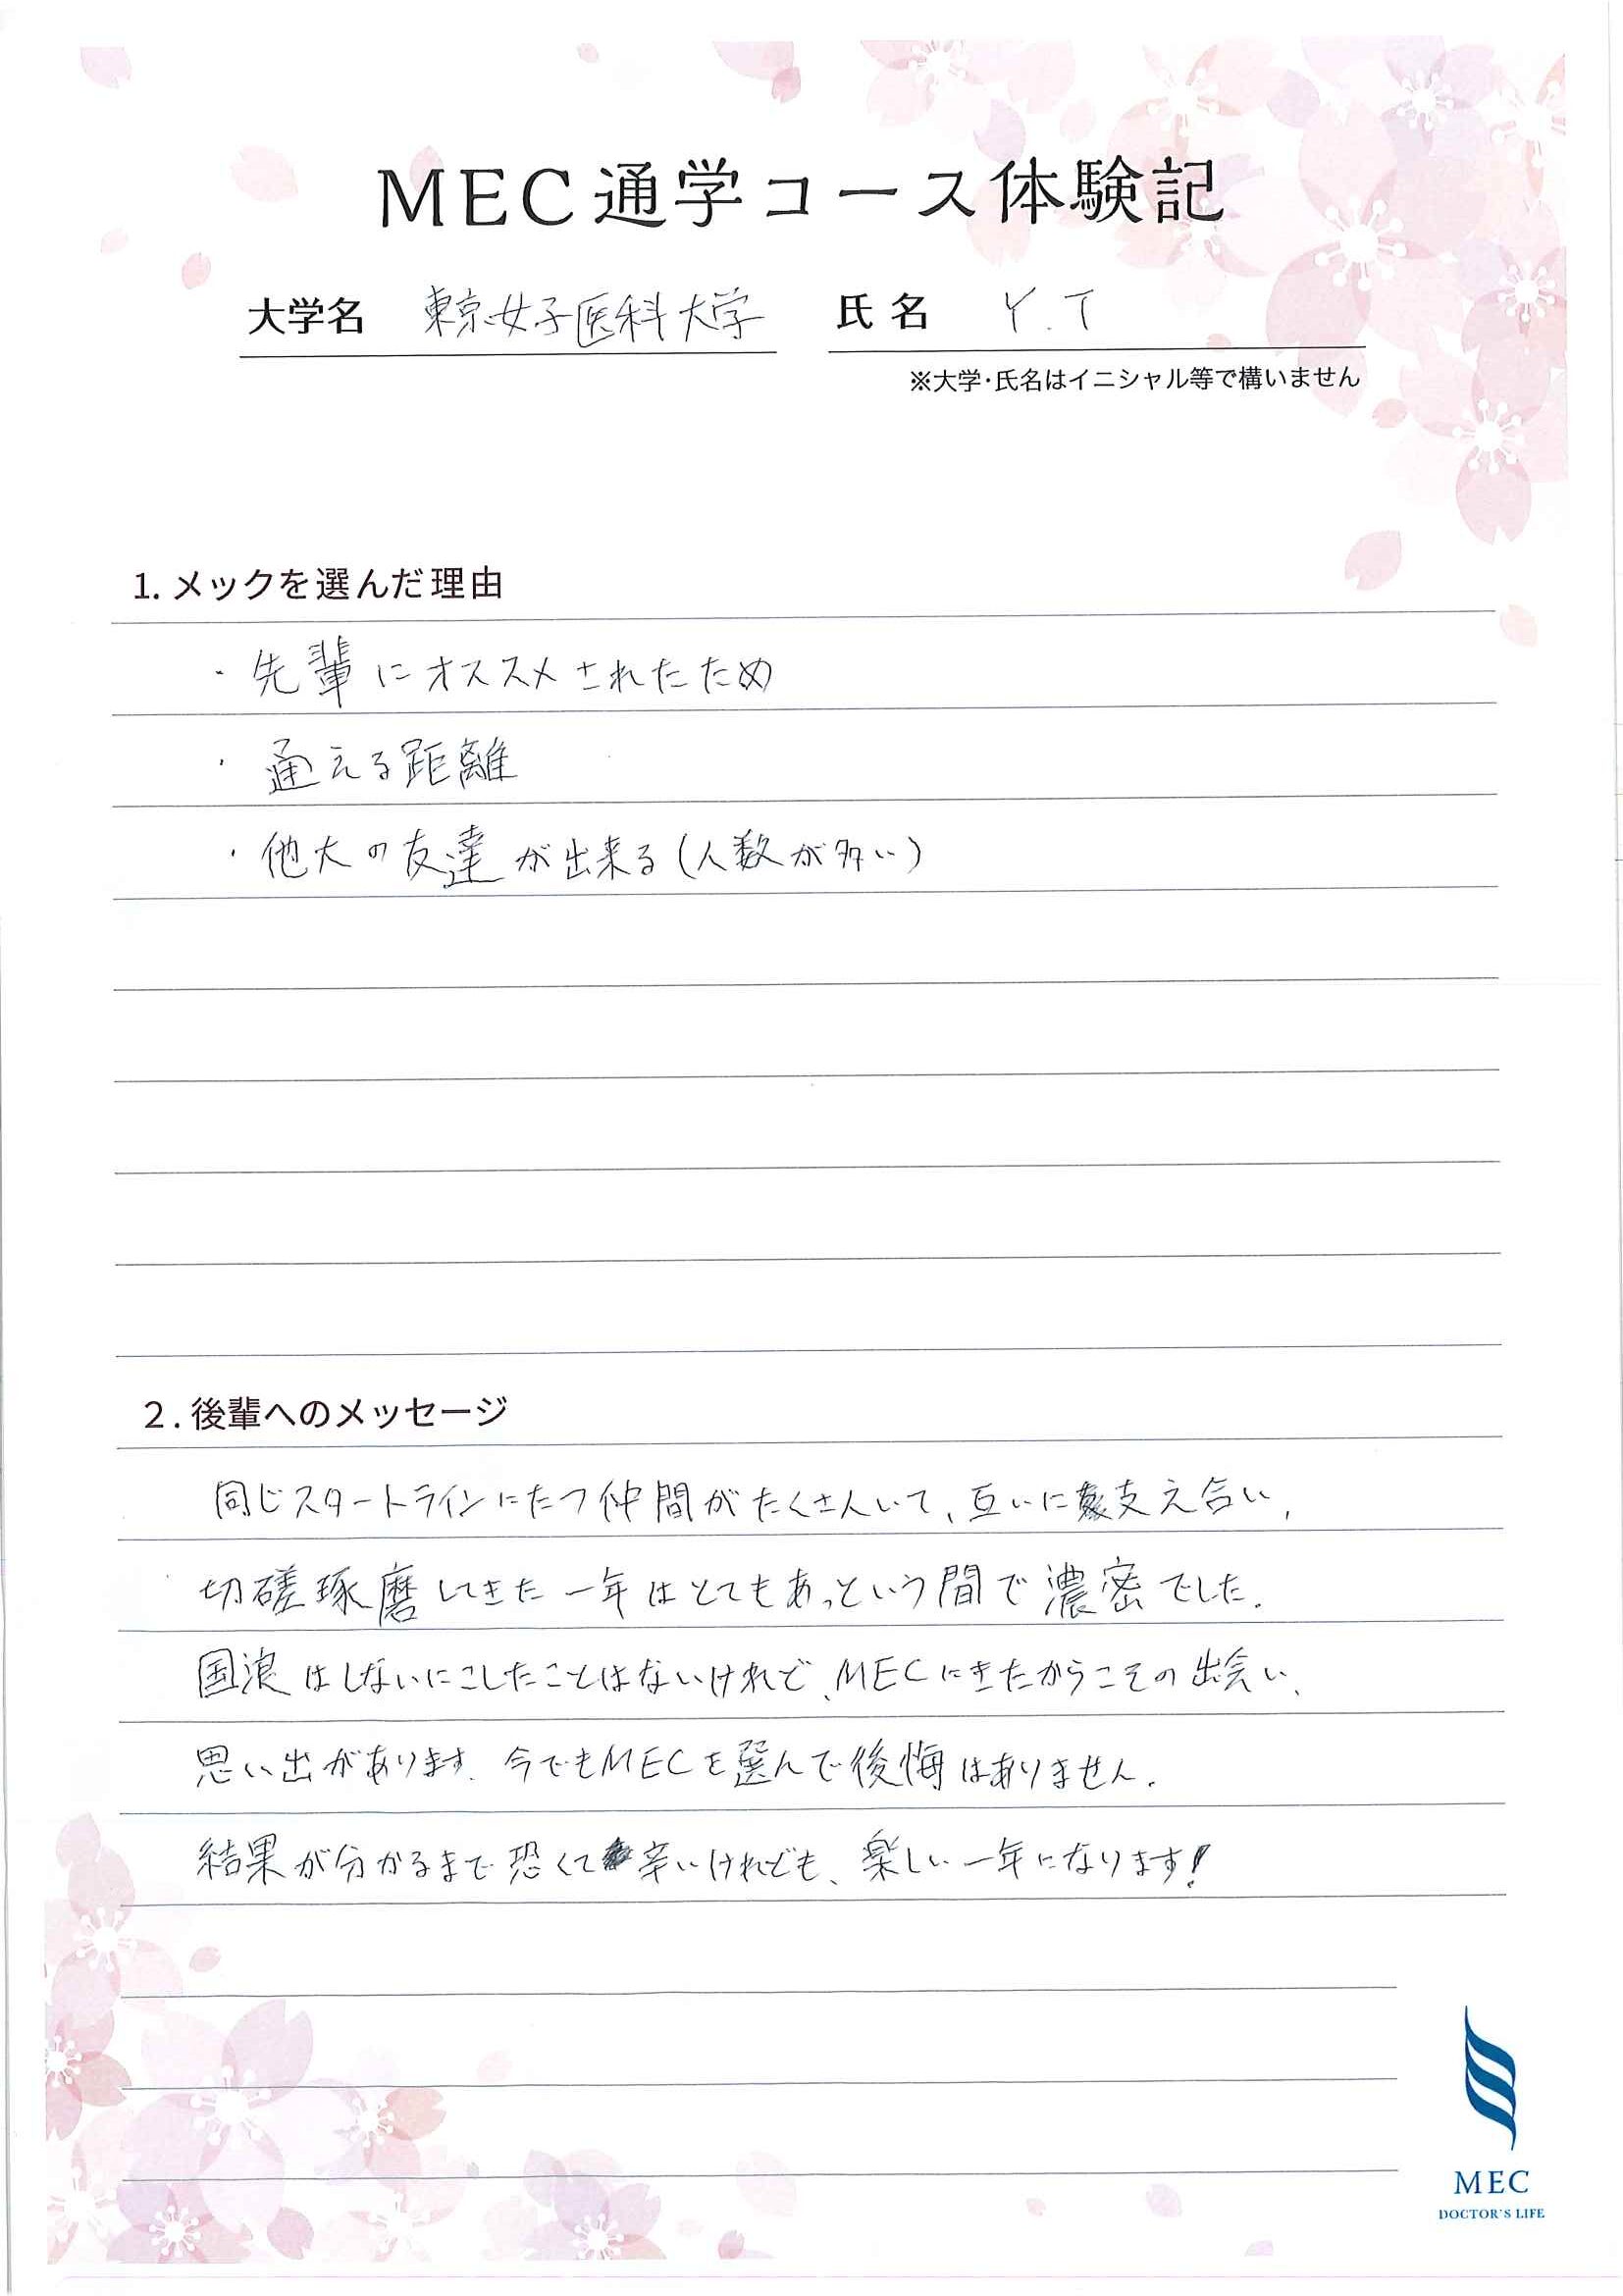 MEC通学コース体験記
大学名 東京女子医科大学 氏名 Y.T
※大学・氏名はイニシャル等で構いません
1. メックを選んだ理由
・先輩にオススメされたため
・通える距離
・他大の友達が出来る(人数が多い)
2. 後輩へのメッセージ
同じスタートラインにたつ仲間がたくさんいて、互いに支え合い、
切磋琢磨してきた一年はとてもあっという間で濃密でした。
国浪はしないにこしたことはないけれど、MECにきたからこその出会い、
思い出があります。今でもMECを選んで後悔はありません。
結果が分かるまで恐くて辛いけれども、楽しい一年になります!
MEC
DOCTOR'S LIFE